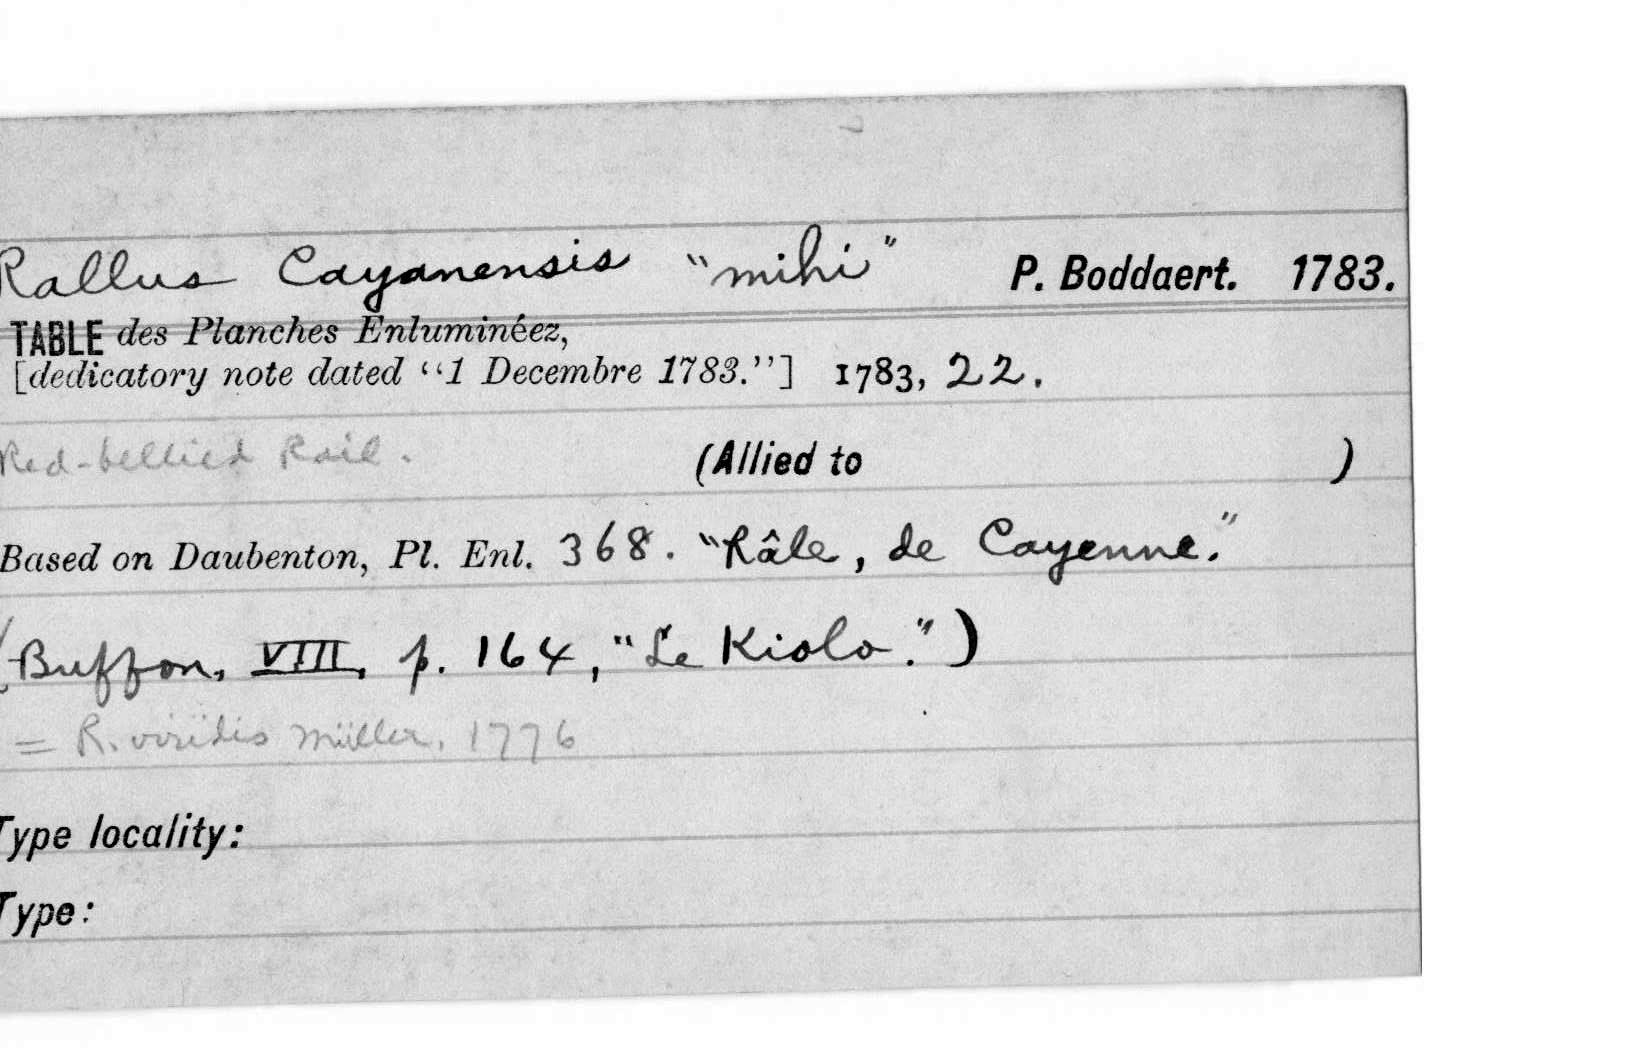 Rallus Cayanensis "mihi" P. Boddaert. 1783.
TABLE des Planches Enluminéez,
[dedicatory note dated "1 Decembre 1783."] 1783, 22.
Red-bellied Rail. (Allied to )
Based on Daubenton, Pl. Enl. 368. "Râle, de Cayenne."
(Buffon, VIII, p. 164, "Le Kiolo.")
= R. viridis Müller, 1776
Type locality:
Type: